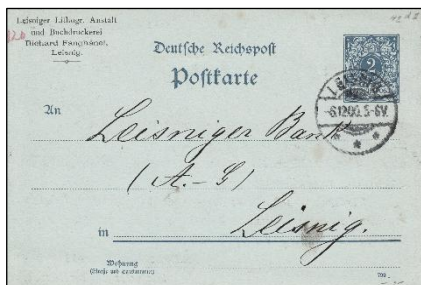 Leisniger Lithogr. Anstalt
und Buchdruckerei
Richard
Leisnig.
Deutsche Reichspost
Postkarte
2
LEISNIG
6.12.00. 5-6V.
* * *
An
Leisniger Bank
(A.-G)
in Leisnig.
Wohnung